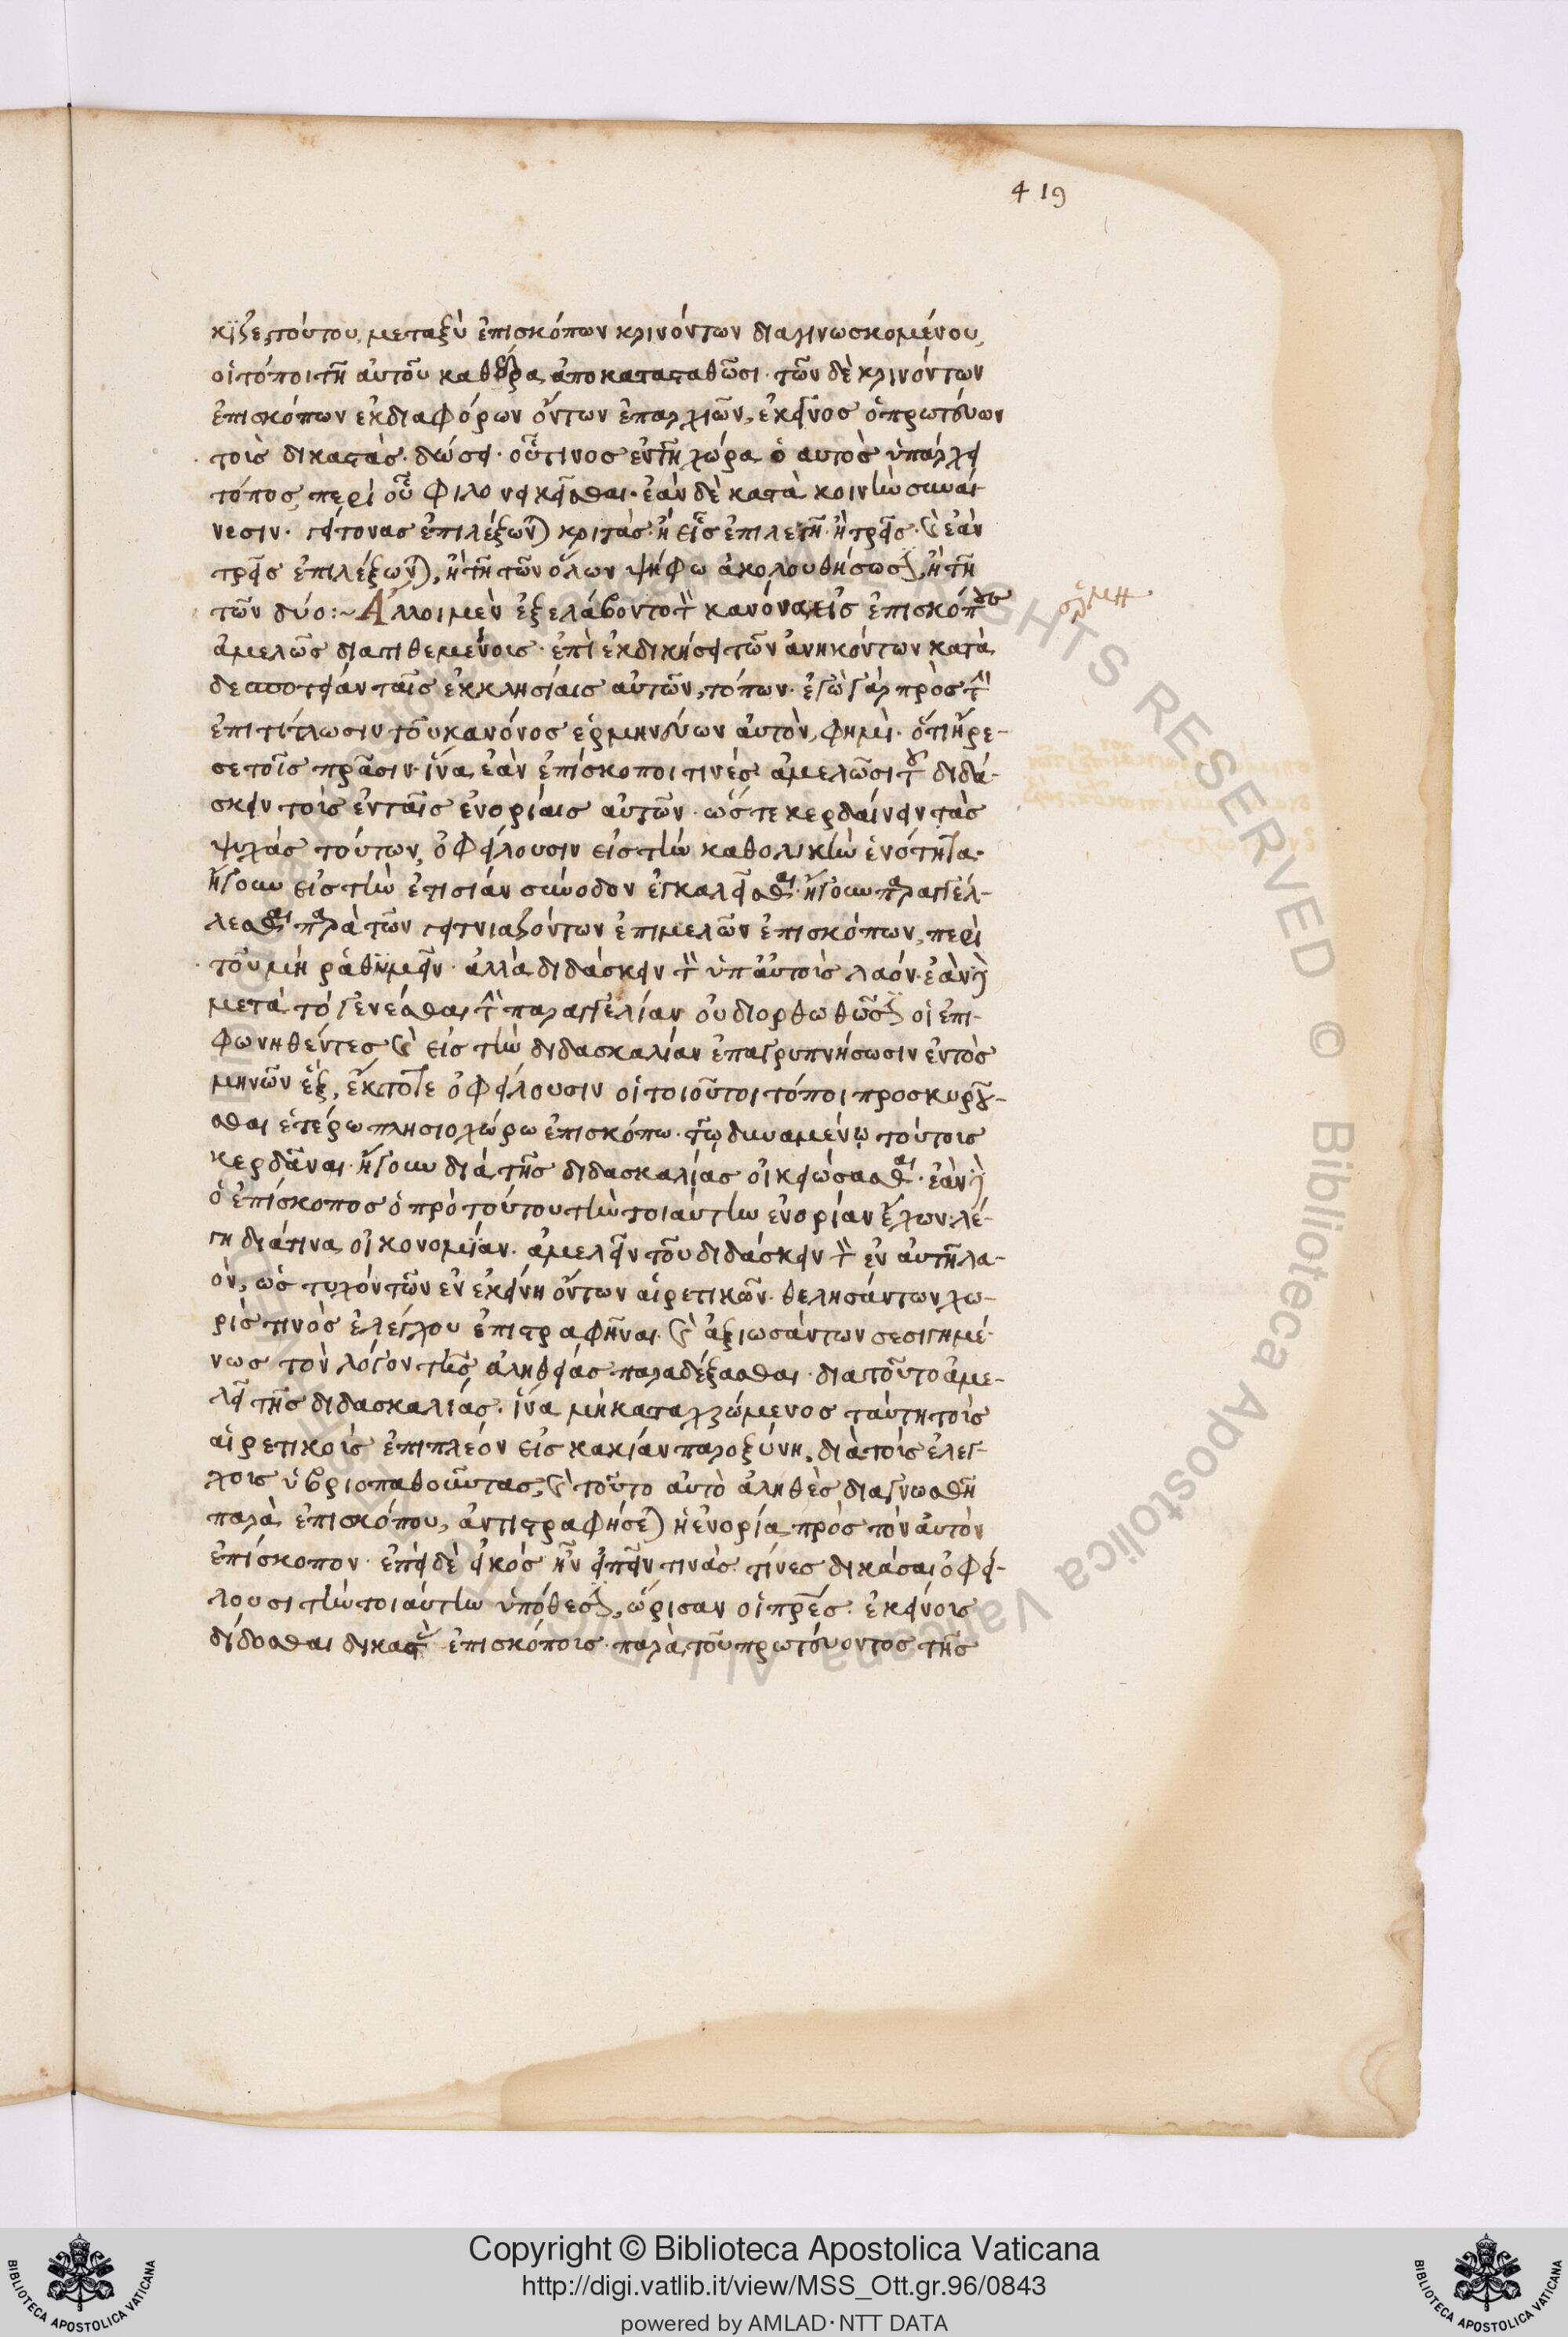 419
κῖζε, τούτου, μεταξὺ ἐπισκόπων κρινόντων διαγινωσκομένου,
οἱ τόποι τῆ αὐτοῦ καθέδρα ἀποκατασταθῶσι· τῶν δὲ κρινόντων
ἐπισκόπων ἐκ διαφόρων ὄντων ἐπαρχιῶν, ἐκεῖνος ὁ πρωτεύων
τοὺς δικαστὰς δώσει· οὗτινος ἐν τῆ χώρα ὁ αυτὸς ὑπάρχει
τόπος, περὶ οὗ φιλονεικεῖσθαι· ἐὰν δὲ κατὰ κοινὴν συναί
νεσιν· γείτονας ἐπιλέξωνται κριτὰς· ἢ εἷς ἐπιλεγῆ· ἢ τρεῖς· καὶ ἐὰν
τρεῖς ἐπιλέξωνται, ἢ τῆ τῶν ὅλων ψήφω ἀκολουθήσωσιν, ἢ τῆ
τῶν δύο:~ Ἄλλοι μὲν ἐξελάβοντο τὸν κανόνα εἰς ἐπισκόπους
ἀμελῶς διατιθεμένοις· ἐπὶ ἐκδικήσει τῶν ἀνηκόντων κατὰ
δεσποτείαν ταῖς ἐκκλησίαις αὐτῶν, τόπων· ἐγὼ γὰρ πρὸς τὴν
ἐπιτίτλωσιν τοῦ κανόνος ἑρμηνεύων αὐτὸν, φημὶ· ὅτι ἤρε-
σε τοῖς πράσιν· ἵνα ἐὰν ἐπίσκοποι τινὲς ἀμελῶσι τοῦ διδά-
σκειν τοὺς ἐν ταῖς ἐνορίαις αὐτῶν· ὥστε κερδαίνειν τὰς
ψυχὰς τούτων, ὀφείλουσιν εἰς τὴν καθολικὴν ἑνότητα·
ἤγουν εἰς τὴν ἐτισίαν σύνοδον ἐγκαλεῖσθαι· ἤγουν παραγγέλ-
λεσθαι παρὰ τῶν γειτνιαζόντων ἐπιμελῶν ἐπισκόπων, περὶ
τοῦ μὴ ῥαθυμεῖν· ἀλλὰ διδάσκειν τὸν ὑπ' αὐτοὺς λαόν· ἐὰν δὲ
μετὰ τὸ γενέσθαι τὴν παραγγελίαν οὐ διορθωθῶσιν οἱ ἐπι-
φωνηθέντες καὶ εἰς τὴν διδασκαλίαν ἐπαγρυπνήσωσιν ἐντὸς
μηνῶν ἓξ, ἔκτοτε ὀφείλουσιν οἱ τοιοῦτοι τόποι προσκυροῦ-
σθαι ἑτέρω πλησιοχώρω ἐπισκόπω· τῷ δυναμένῳ τούτοις
κερδᾶναι· ἤγουν διὰ τῆς διδασκαλίας οἰκειώσασθαι· ἐὰν δὲ
ὁ ἐπίσκοπος ὁ πρὸ τούτου τὴν τοιαύτην ἐνορίαν ἔχων· λέ-
γη διά τινα οἰκονομίαν· ἀμελεῖν τοῦ διδάσκειν τὸν ἐν αὐτῆ λα-
ὸν, ὡς τυχόν τῶν ἐν ἐκείνη ὄντων αἱρετικῶν· θελησάντων χω-
ρίς τινὸς ἐλέγχου ἐπιστραφῆναι· καὶ ἀξιωσάντων σεσιγημέ-
νως τὸν λόγον τῆς ἀληθείας παραδέξασθαι· διατοῦτο ἀμε-
λεῖ τῆς διδασκαλίας· ἵνα μὴ καταρχόμενος ταύτη τοὺς
αἱρετικοὺς ἐπιπλεόν εἰς κακίαν παροξύνη, διὰ τοὺς ἐλεγ-
χοις ὑβριοπαθοῦντας, καὶ τοῦτο αὐτὸ ἀληθὲς διαγνωσθῆ
παρὰ ἐπισκόπου, ἀντιστραφήσεται ἡ ἐνορία πρὸς τὸν αὐτὸν
ἐπίσκοπον· ἐπεὶ δὲ εἰκός ἦν εἰπεῖν τινὰς· τίνες δικάσαι ὀφεί-
λουσι τὴν τοιαύτην ὑπόθεσιν, ὥρισαν οἱ πρες· ἐκείνοις
δίδοσθαι δικαστὰς ἐπισκόποις· παρὰ τοῦ πρωτεύοντος τῆς
Copyright © Biblioteca Apostolica Vaticana
http://digi.vatlib.it/view/MSS_Ott.gr.96/0843
powered by AMLAD·NTT DATA